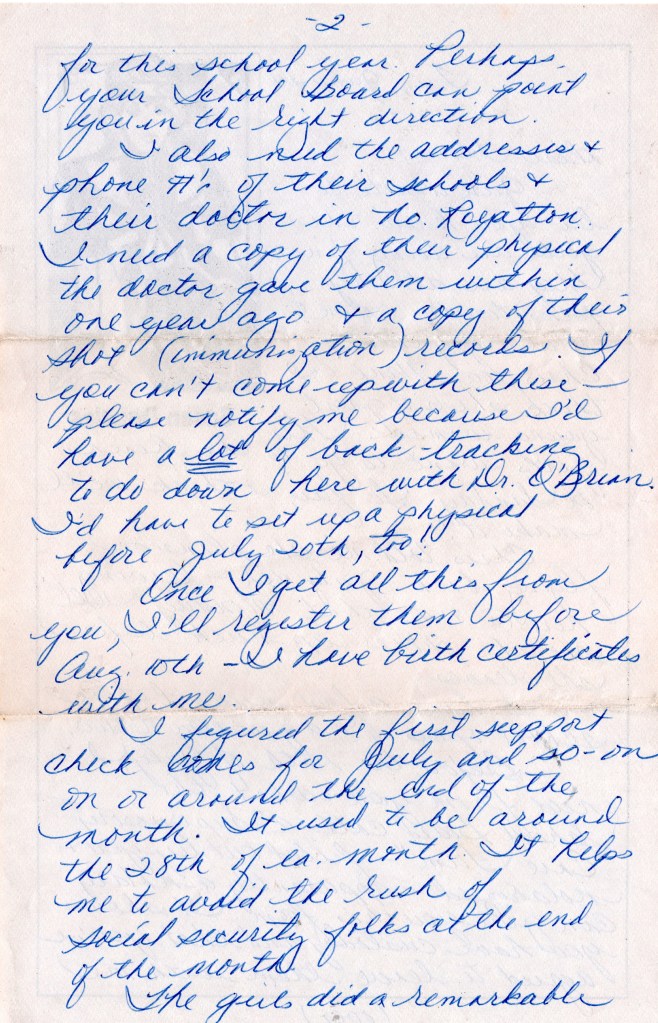 -2-
for this school year. Perhaps,
your School Board can point
you in the right direction.
I also need the addresses &
phone #'s of their schools &
their doctor in No. Royalton.
I need a copy of their physical
the doctor gave them within
one year ago & a copy of their
shot (immunization) records. If
you can't come up with these—
please notify me because I'd
have a lot of back-tracking
to do down here with Dr. O'Brian.
I'd have to set up a physical
before July 20th, too!
Once I get all this from
you, I'll register them before
Aug. 10th - I have birth certificates
with me.
I figured the first support
check comes for July and so-on
on or around the end of the
month. It used to be around
the 28th of ea. month. It helps
me to avoid the rush of
social security folks at the end
of the month.
The girls did a remarkable